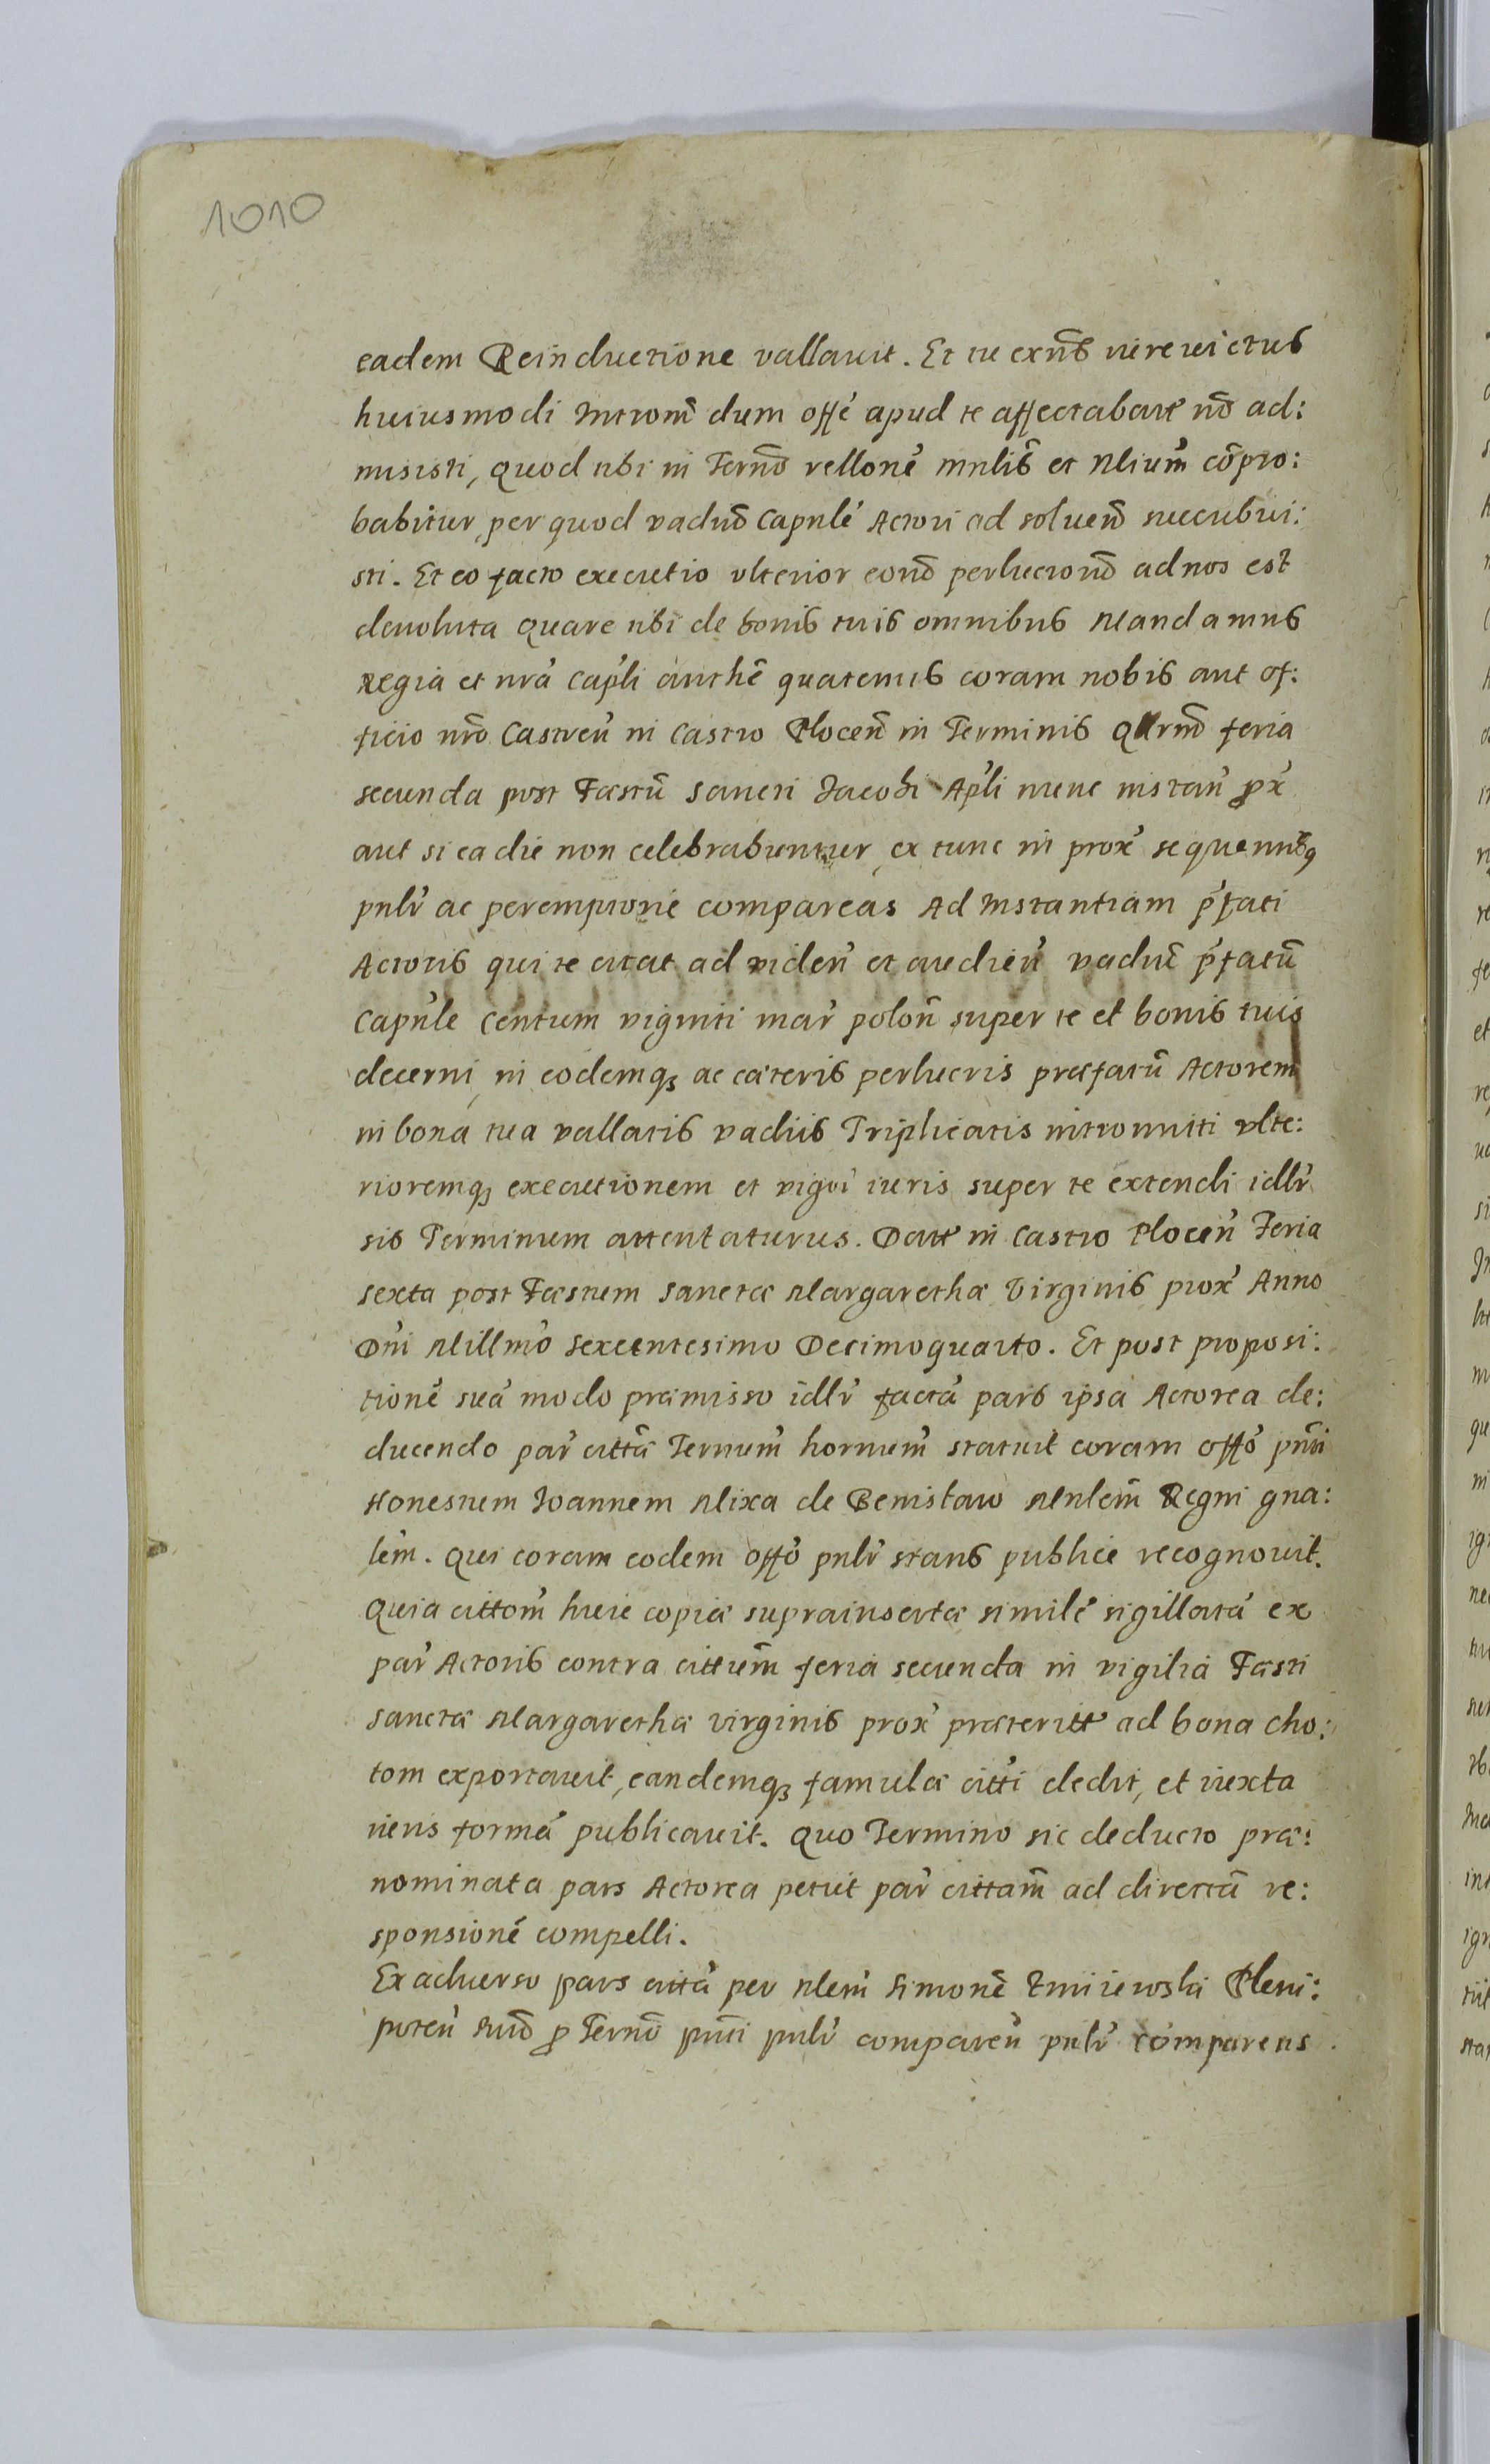 1010
eadem Reinductione vallauit. Et tu exñs iure victus
huiusmodi Introm̃ dum offé apud te affectabatr nõ ad:
misisti, quod tibi in Termõ rellone mnlis et Nlium cõpro:
babitur, per quod vadiũ Capnle Actori ad soluend̃ succubui:
sti. Et eo facto executio vlterior eond̃ perlucrond̃ ad nos est
deuoluta quare tibi de bonis tuis omnibus Mandamus
Regia et nrã Capli authẽ quatenus coram nobis aut of:
ficio nrõ Castreñ in Castro Plocen̄ in Terminis Qurnd̃ feria
secunda post Fæstũ Sancti Jacobi Apli nunc instañ prox̃
aut si ea die non celebrabuntur, ex tunc in prox̃ sequentibꝫ
pnlr̃ ac peremptorie compareas Ad Instantiam p̃fati
Actoris qui te citat ad videñ et audieñ vadiũ p̃fatũ
Capnle Centum viginti mar̃ poloñ super te et bonis tuis
decerni, in eodemqꝫ ac cæteris perlucris præfatũ Actorem
in bona tua vallatis vadiis Triplicatis intromitti vlte:
rioremqꝫ executionem et vigoĩ iuris super te extendi idlr̃
sis Terminum attentaturus. Datt in Castro Plocen̄ Feria
sexta post Fæstum Sanctæ Margarethæ Virginis prox̃ Anno
Dñi Millmõ Sexcentesimo Decimoquarto. Et post proposi:
tionẽ suã modo præmisso idlr̃ factã pars ipsa Actorea de:
ducendo par̃ cittã Ternum̃ hornum̃ statuit coram offõ pñti
Honestum Joannem Mixa de Benislaw Mnlem̃ Regni gna:
lẽm. Qui coram eodem offõ pnlr̃ stans publice recognouit.
Quia cittom̃ huic copiæ suprainsertæ similẽ sigillatã ex
par̃ Actoris contra cittum̃ feria secunda in vigilia Fæsti
Sanctæ Margarethæ virginis prox̃ præteritt ad bona Cho:
tom exportauit, eandemqꝫ famulæ citti dedit, et iuxta
iuris formã publicauit. Quo Termino sic deducto præ:
nominata pars Actorea petiit par̃ cittam̃ ad directã re:
sponsionẽ compelli.
Ex aduerso pars citta per Nlem̃ Simonẽ Zmiiewski Pleni:
poteñ suũ p Ternõ pñti pnlr̃ compareñ pnlr̃ comparens